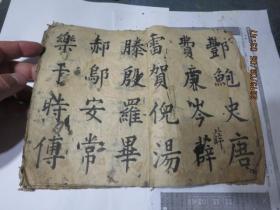 酆鮑史唐
費廉岑薛
薛
雷賀倪湯
滕殷羅畢
郝鄔安常
樂于時傅